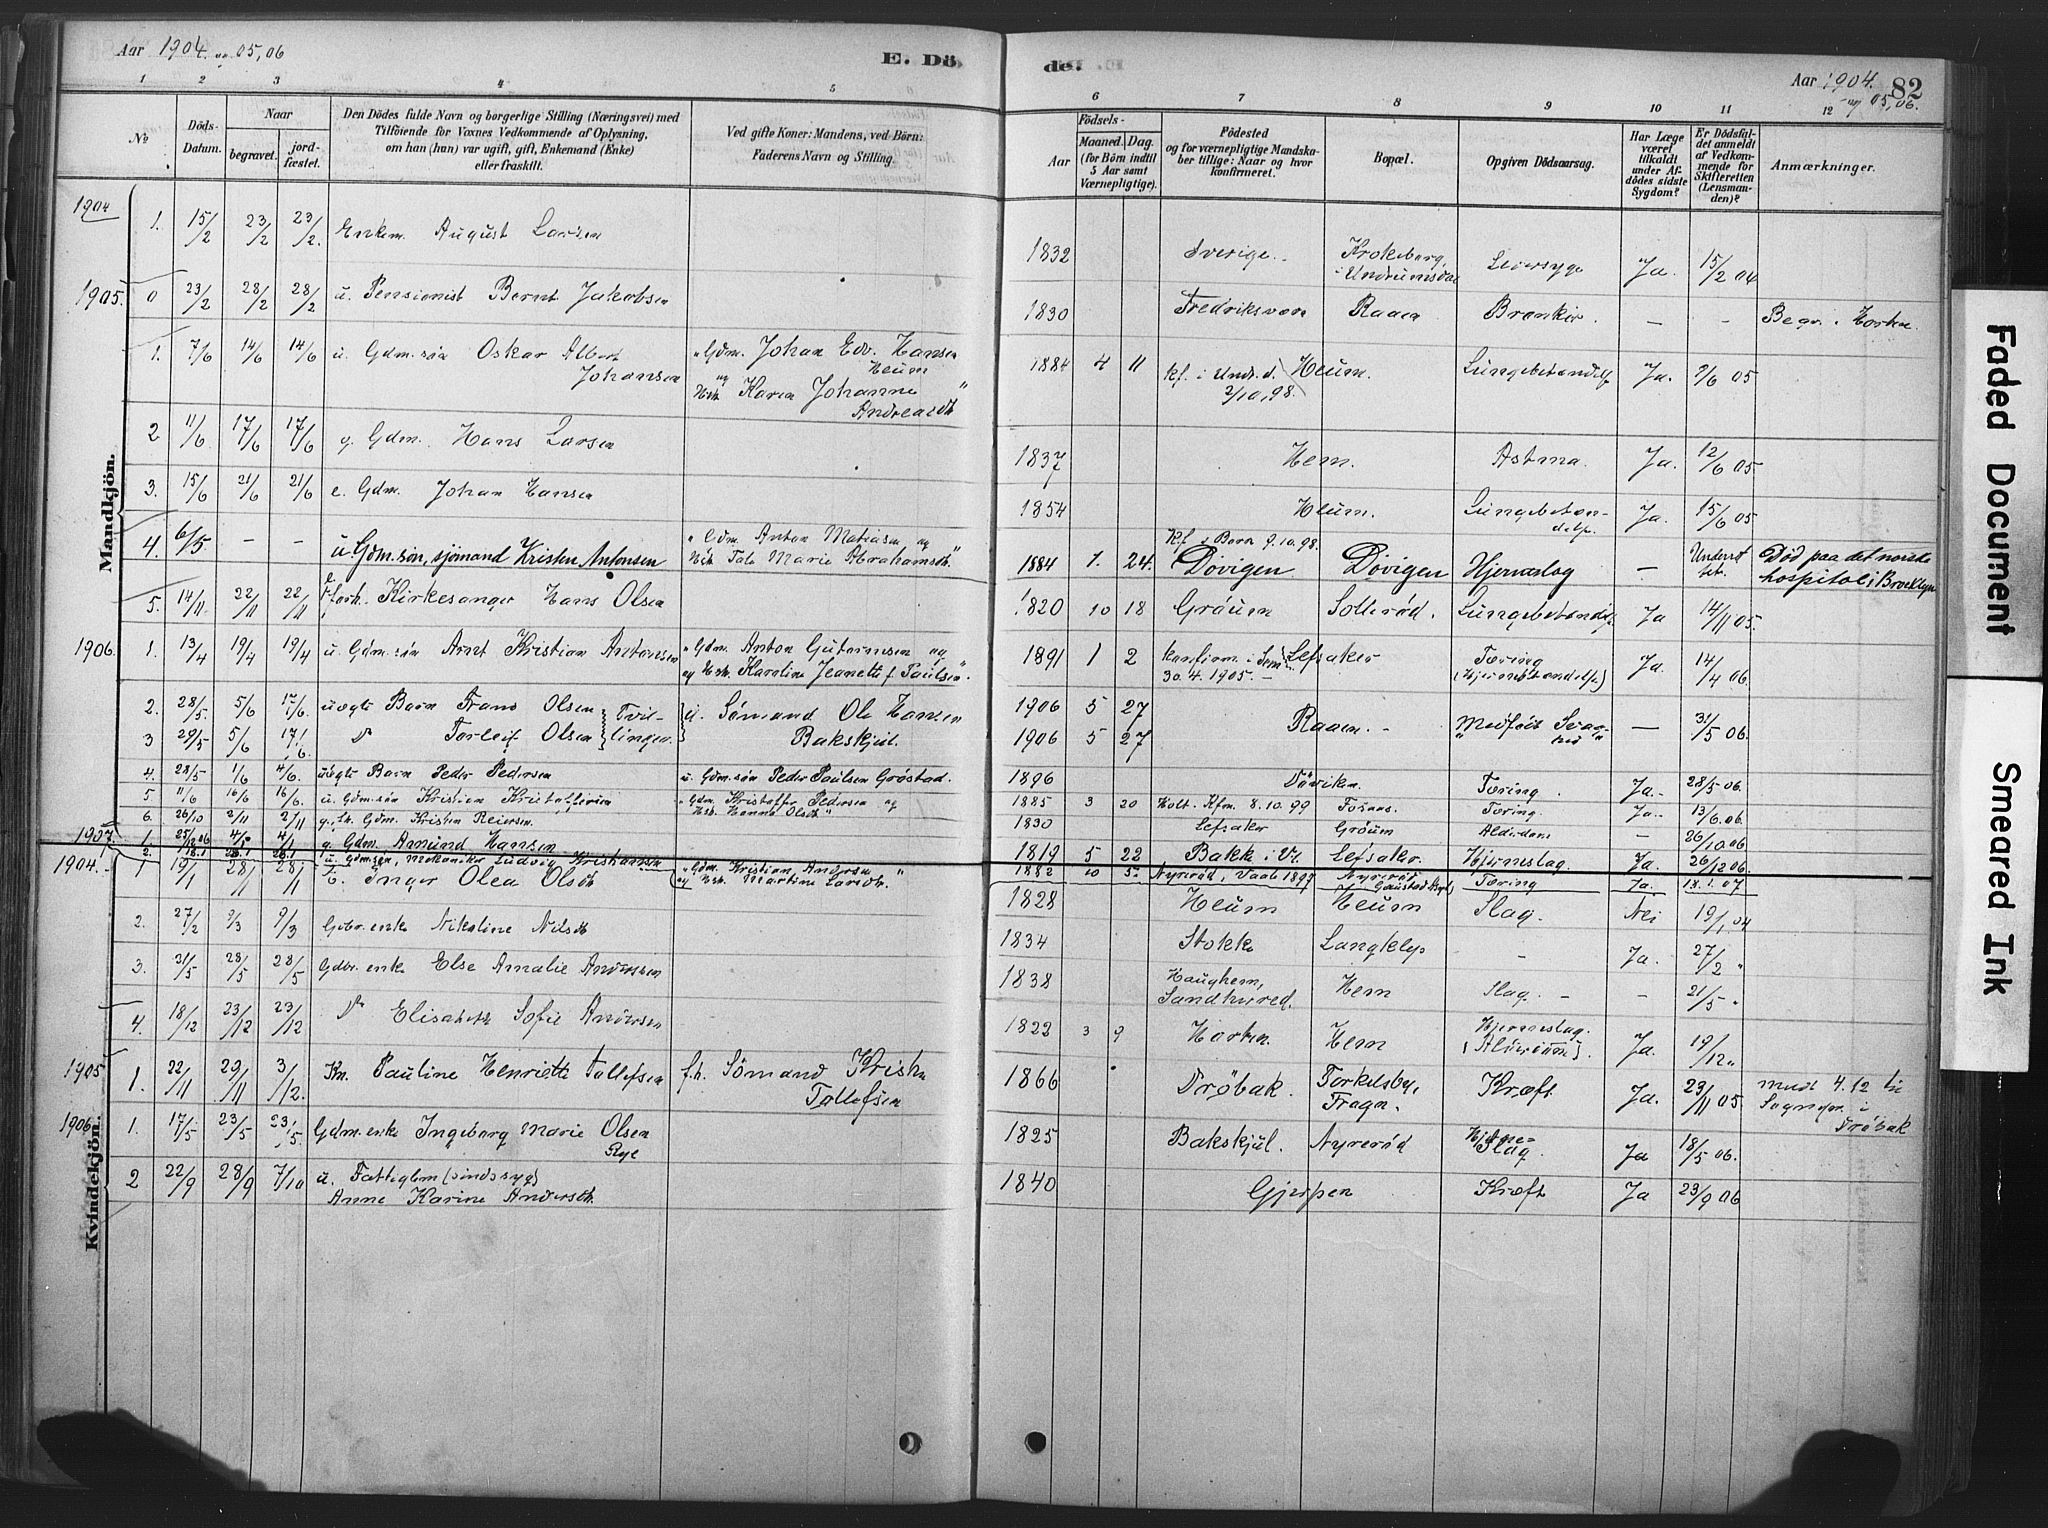 Aar 1904. og 05, 06
E. Dö
de.
Aar 1904. og 05, 06.
82
1 2 3 4 5 6 7 8 9 10 11 12
No
Döds-Datum.
Naar
begravet.
jordfæstet.
Den Dödes fulde Navn og borgerlige Stilling (Næringsvei) med
Tilföiende for Voxnes Vedkommende af Oplysning,
om han (hun) var ugift, gift, Enkemand (Enke)
eller fraskilt.
Ved gifte Koner: Mandens, ved Börn:
Faderens Navn og Stilling.
Födsels-
Aar
Maaned. Dag.
(for Börn indtil
5 Aar samt
Værnepligtige).
Födested
og for værnepligtige Mandska-
ber tillige: Naar og hvor
konfirmeret.
Bopæl.
Opgiven Dödsaarsag.
Har Læge
været
tilkaldt
under Af-
dödes sidste
Sygdom?
Er Dödsfal-
det anmeldt
af Vedkom-
mende for
Skifteretten
(Lensman-
den)?
Anmærkninger.
Mandkjön.
1904
1. 15/2 23/2 23/2. Enkem. August Larsen 1832 Sverige. Krokeborg, i Undrumsdal Leversyge Ja. 15/2 04
1905.
0 23/2 28/2 28/2 u. Pensionist Bernt Jakobsen 1830 Fredriksværn Raaen Bronkit. — — Begr. i Horten.
1. 7/6 14/6 14/6 u. Gdm.søn Oskar Albert Johansen Gdm. Johan Edv. Hansen Heum og Hst. Karen Johanne Andreasdt. 1884 4 11 kf. i Undr.d. 2/10, 98. Heum. Lungebetændelse Ja. 9/6 05
2 11/6 17/6 17/6 g. Gdm. Hans Larsen 1837 Hem. Astma. Ja. 12/6 05
3. 15/6 21/6 21/6 e. Gdm. Johan Hansen 1854 Heum. Lungebetændelse Ja. 15/6 05
4. 6/5 — — u. Gdm.søn, sjømand Kristen Antonsen Gdm. Anton Matiasen og Hst. Tale Marie Abrahamsdt. 1884 7. 24. Kf. i Borre 9.10.98. Døvigen Døvigen Hjerneslag — Underrettet. Død paa det norske hospital i Brooklyn
5. 14/11 22/11 22/11 forh. Kirkesanger Hans Olsen 1820 10 18 Gröum Solleröd. Lungebetændelse Ja 14/11 05.
1906.
1. 13/4 19/4 19/4 u. Gdm.søn Arnt Kristian Antonsen Gdm. Anton Gutormsen og Hst. Karoline Jeanette f. Paulsen. 1891 1 2 konfirm. i Sem 30.4.1905. — Lefsaker Tæring (Hjernebetændelse) Ja. 14/4 06.
2. 28/5 5/6 17/6. uægte Barn Frans Olsen Tvillinger. u. Sømand Ole Hansen Bakskjul. 1906 5 27 Raaen. Medfødt Svaghed — 31/5 06.
3 29/5 5/6 17/6. do Torleif Olsen 1906 5 27
4. 28/5 1/6 4/6. uægte Barn Peder Pedersen u. Gdm.søn Peder Paulsen Grøstad. 1896 Döviken. Tæring. Ja. 28/5 06.
5. 11/6 16/6 16/6. u. Gdm.søn Kristian Kristoffersen Gdm. Kristoffer Pedersen og Hst. Hanna Olsdt. 1885 3 20 Holt. Kfm. 8.10.99 Tornæs. Tæring. Ja. 13/6.06.
6. 26/10 2/11 2/11 Gdm. Kristen Reiersen. 1830 Lefsaker Gröum Alderdom — 26/10 06
1907.
1. 25/12 06 4/1 4/1 g. Gdm. Amund Hansen 1819 5 22 Bakke i V. Lefsaker. Hjerneslag. Ja. 26/12 06.
2. 18.1 28.1 28.1 u. Gdm.søn, Mekaniker Ludvig Kristiansen Gdm. Kristian Andersen og Hst. Martine Larsdt. 1882 10 5. Nyrerød, Vaale 1897 Nyrerød Tæring Ja. 18.1.07
Kvindekjön.
1904.
1 19/1 28/1 28/1 E. Inger Olea Olsdt. 1828 Heum Heum Slag. Nei 19/1 04
2. 27/2 9/3 9/3 Gdbr.enke Nikoline Nilsdt. 1834 Stokke Langklep - Ja. 27/2 "
3. 21/5 28/5 28/5 Gdbr.enke Else Amalie Andersen 1838 Haughem, Sandhered. Hem Slag. — - 21/5 "
4. 18/12 23/12 23/12 do Elisabeth Sofie Andersen 1822 3 9 Horten. Hem Hjerneslag. (Alderdom). Ja. 19/12 "
1905
1. 22/11 29/11 3/12. Kn. Pauline Henriette Tollefsen f.h. Sömand Kristen Tollefsen 1866 Dröbak. Torkelsby, Fragn. Kræft Ja. 23/11 05 medt. 4.12 til Sogneprs. i Dröbak
1906.
1. 17/5 23/5 23/5. Gdm.enke Ingeborg Marie Olsen Rye 1825 Bakskjul. Nyreröd Hjerneslag. Ja 18/5 06.
2 22/9 28/9 7/10 u. Fattiglem (sindssyg) Anne Karine Andersdt. 1840 Gjerpen Kræft Ja 23/9 06
Faded Document
Smeared Ink